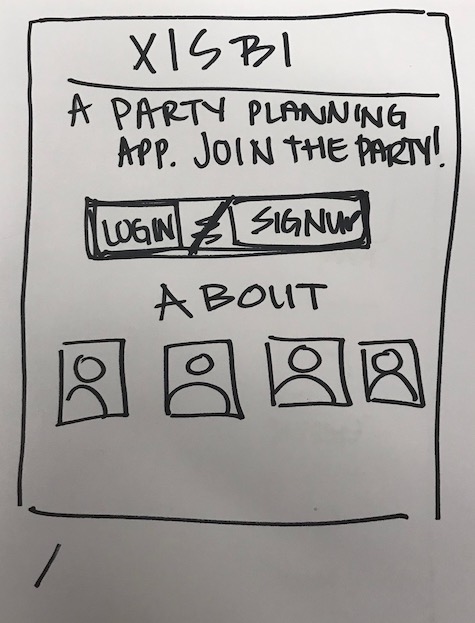 XISBI
A PARTY PLANNING
APP. JOIN THE PARTY!
LOGIN SIGNUP
ABOUT
/